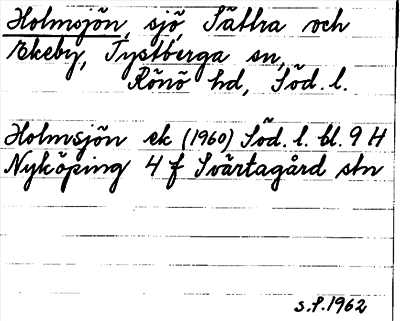 Holmsjön, sjö, Sättra och
Ekeby, Tystberga sn,
Rönö hd, Söd. l.
Holmsjön ek (1960) Söd. l. bl. 9 H
Nyköping 4 f Svärtagård stn
S.P. 1962